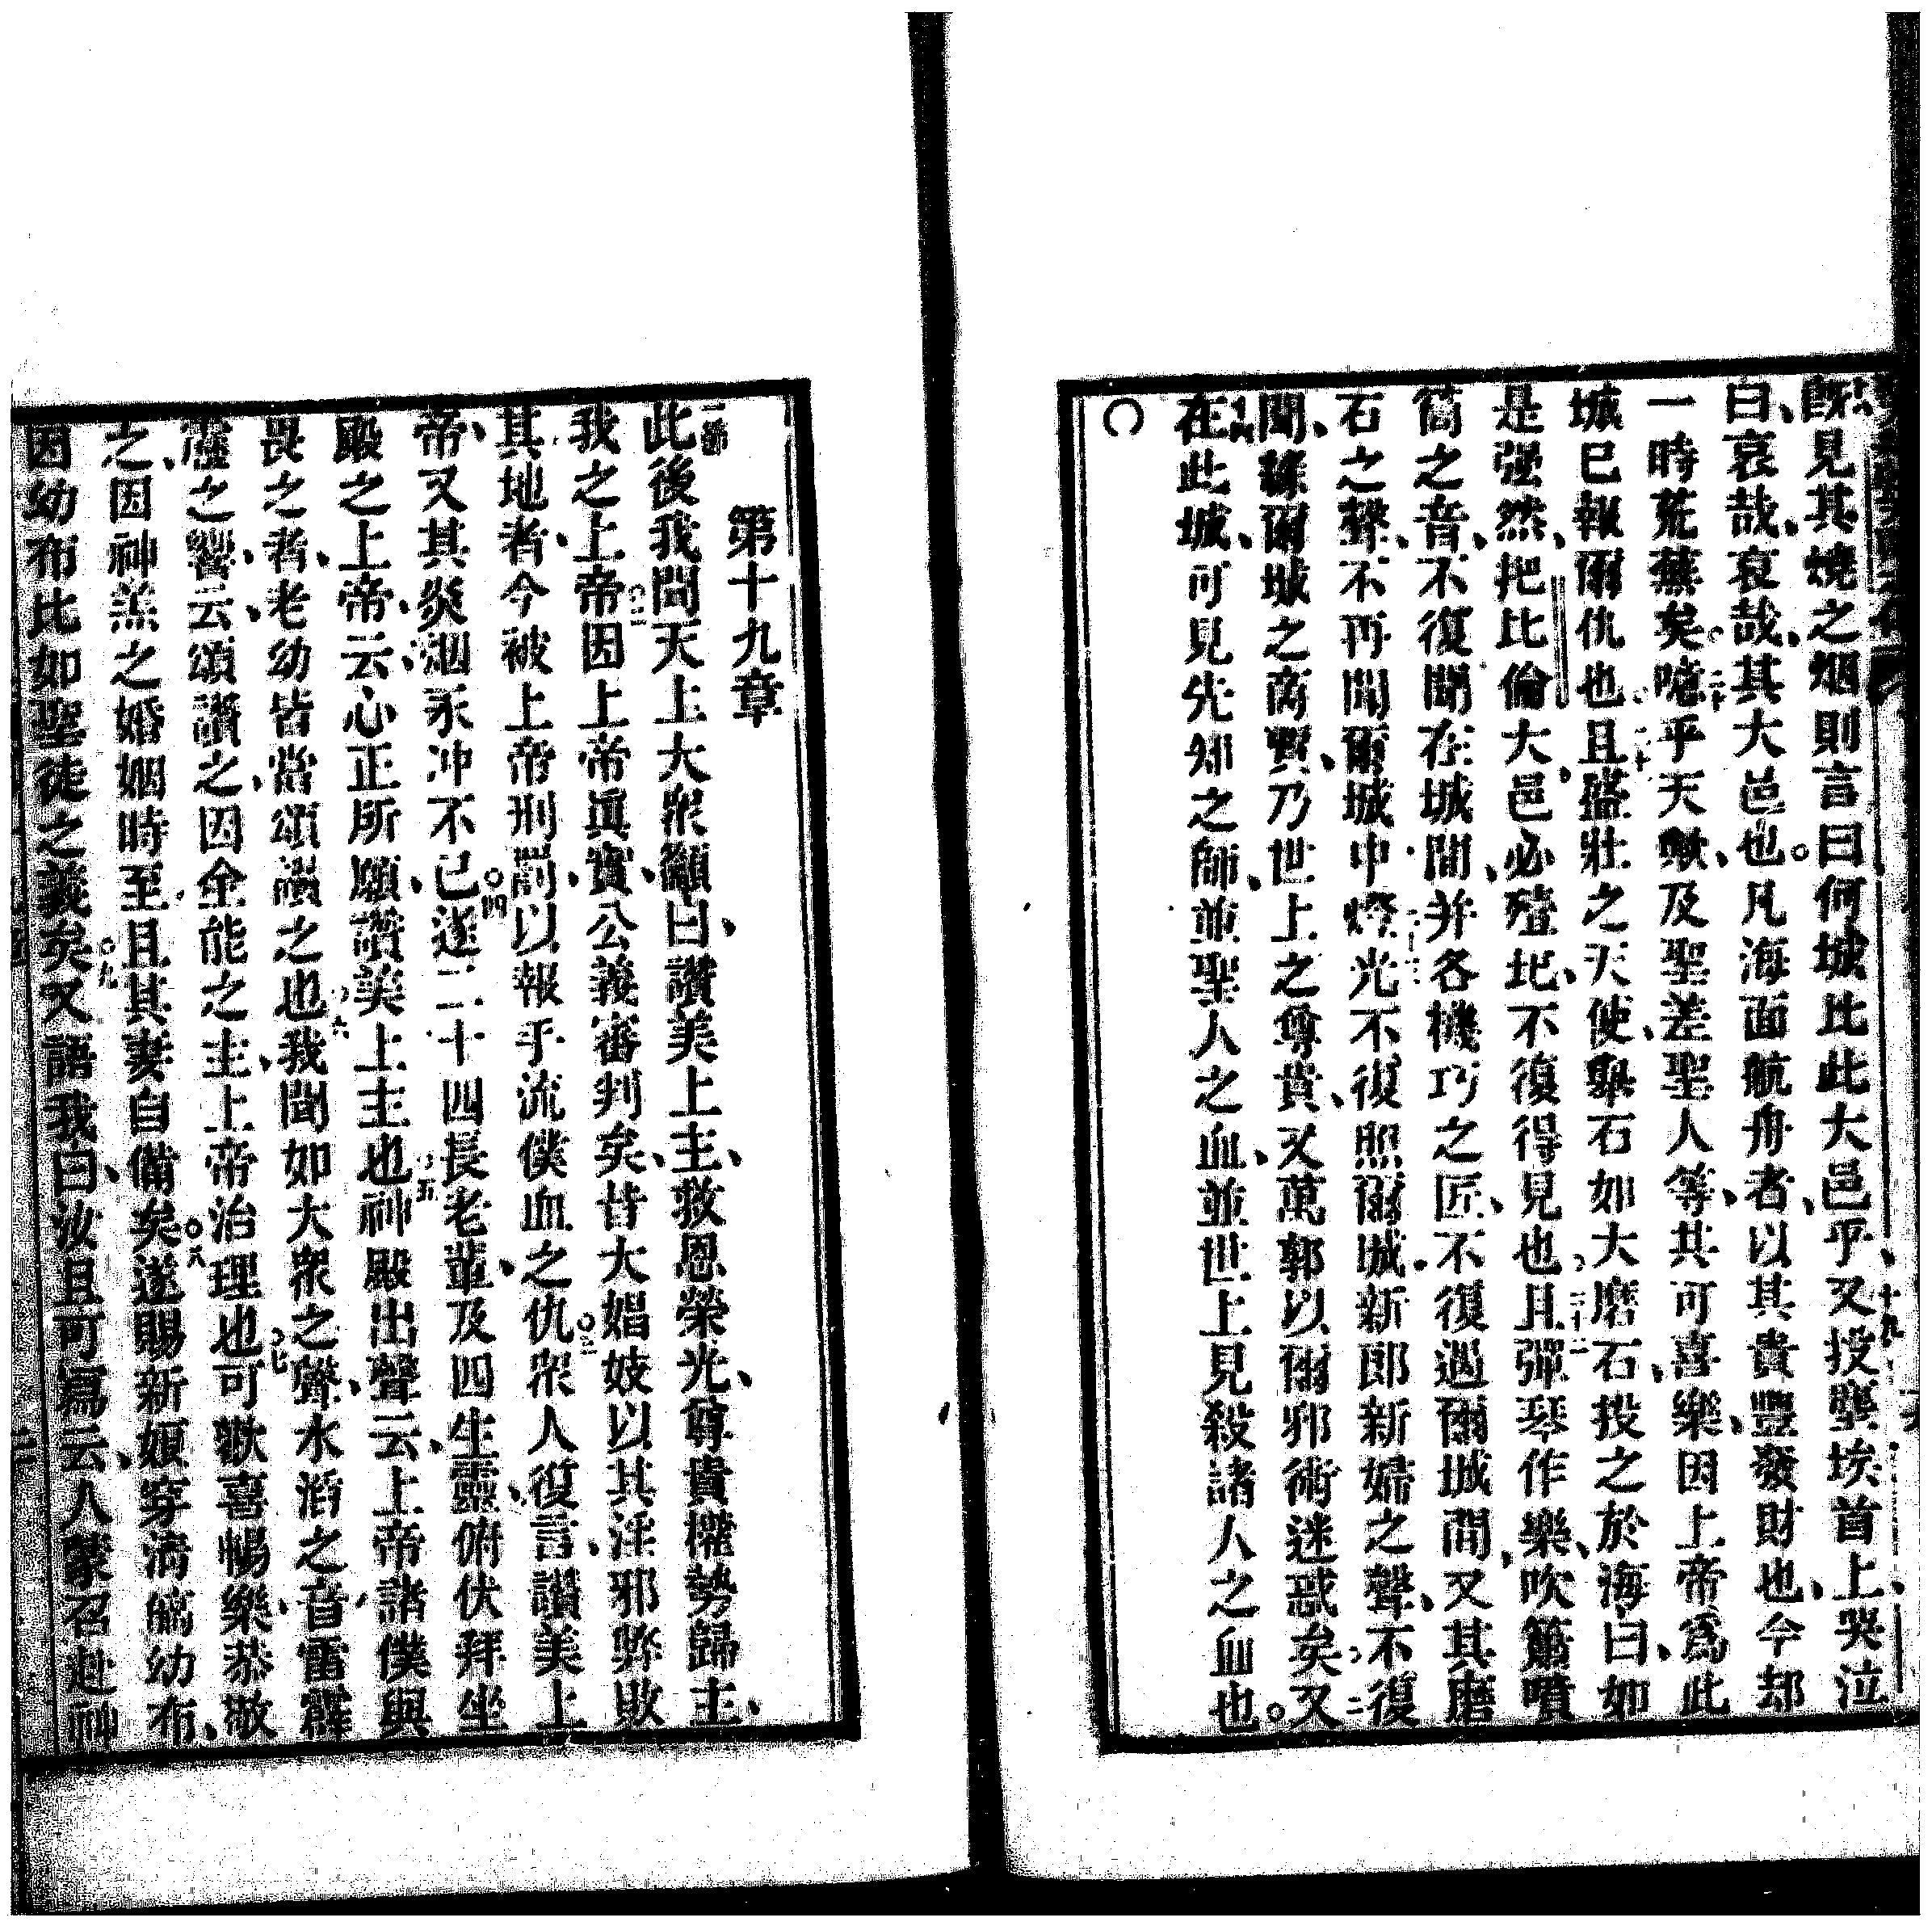 既見其燒之烟則言曰何城比此大邑乎又投壅埃首上哭泣
曰、哀哉、哀哉、其大邑也。凡海面航舟者、以其貴豐發財也、今却
一時荒蕪矣。二十噫乎天歟、及聖差聖人等、其可喜樂、因上帝爲此
城已報爾仇也。二十一且盛壯之天使、舉石如大磨石、投之於海、曰、如
是强然、把比倫大邑必殪圮、不復得見也。二十二且彈琴作樂、吹簫噴
筒之音、不復聞在城間、并各機巧之匠、不復遇爾城間、又其磨
石之聲、不再聞爾城中、二十三燈光不復照爾城、新郎新婦之聲、不復
聞、蓋爾城之商賈、乃世上之尊貴、又萬郭以爾邪術迷惑矣。二十四又
在此城、可見先知之師、並聖人之血、並世上見殺諸人之血也。
第十九章
一節此後我聞天上大衆籲曰、讚美上主、救恩榮光、尊貴權勢歸主、
我之上帝。二因上帝眞實、公義審判矣、昔大娼妓以其淫邪弊敗
其地者、今被上帝刑罰、以報乎流僕血之仇。三衆人復言、讚美上
帝、又其炎烟永冲不已。四遂二十四長老輩、及四生靈、俯伏拜坐
殿之上帝、云、心正所願、讚美上主也。五神殿出聲云、上帝諸僕與
畏之者、老幼皆當頌讚之也。六我聞如大衆之聲、水滔之音、雷霹
靂之響、云、頌讚之、因全能之主、上帝治理也。七可歡喜暢樂、恭敬
之、因神羔之婚姻時至、且其妻自備矣。八遂賜新娘穿淸縞幼布、
因幼布比如聖徒之義矣。九又語我曰、汝且可寫云、人蒙召赴神